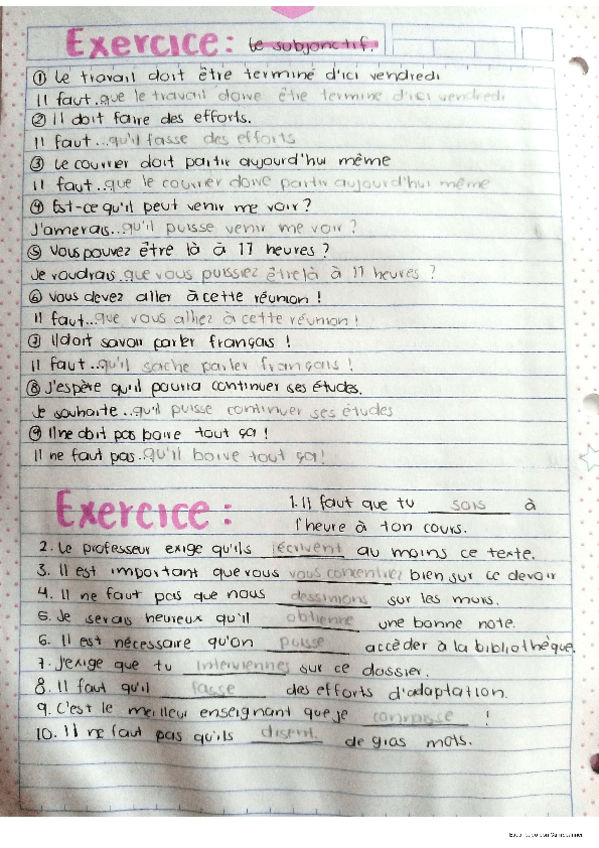 Exercice: le subjonctif.
① Le travail doit être terminé d'ici vendredi
Il faut..que le travail doive être terminé d'ici vendredi
② Il doit faire des efforts.
Il faut...qu'il fasse des efforts
③ Le courrier doit partir aujourd'hui même
Il faut..que le courrier doive partir aujourd'hui même
④ Est-ce qu'il peut venir me voir?
J'amerais...qu'il puisse venir me voir?
⑤ Vous pouvez être là à 17 heures?
Je voudrais que vous puissiez être là à 17 heures?
⑥ Vous devez aller à cette réunion!
Il faut...que vous alliez à cette réunion!
⑦ Il doit savoir parler français!
Il faut...qu'il sache parler français!
⑧ J'espère qu'il pourra continuer ses études.
Je souhaite...qu'il puisse continuer ses études
⑨ Il ne doit pas boire tout ça!
Il ne faut pas.qu'il boive tout ça!
Exercice: 1. Il faut que tu sois à
l'heure à ton cours.
2. Le professeur exige qu'ils écrivent au moins ce texte.
3. Il est important que vous vous concentriez bien sur ce devoir
4. Il ne faut pas que nous dessinions sur les murs.
5. Je serais heureux qu'il obtienne une bonne note.
6. Il est nécessaire qu'on puisse accèder à la bibliothèque.
7. J'exige que tu interviennes sur ce dossier.
8. Il faut qu'il fasse des efforts d'adaptation.
9. C'est le meilleur enseignant que je connaisse!
10. Il ne faut pas qu'ils disent de gros mots.